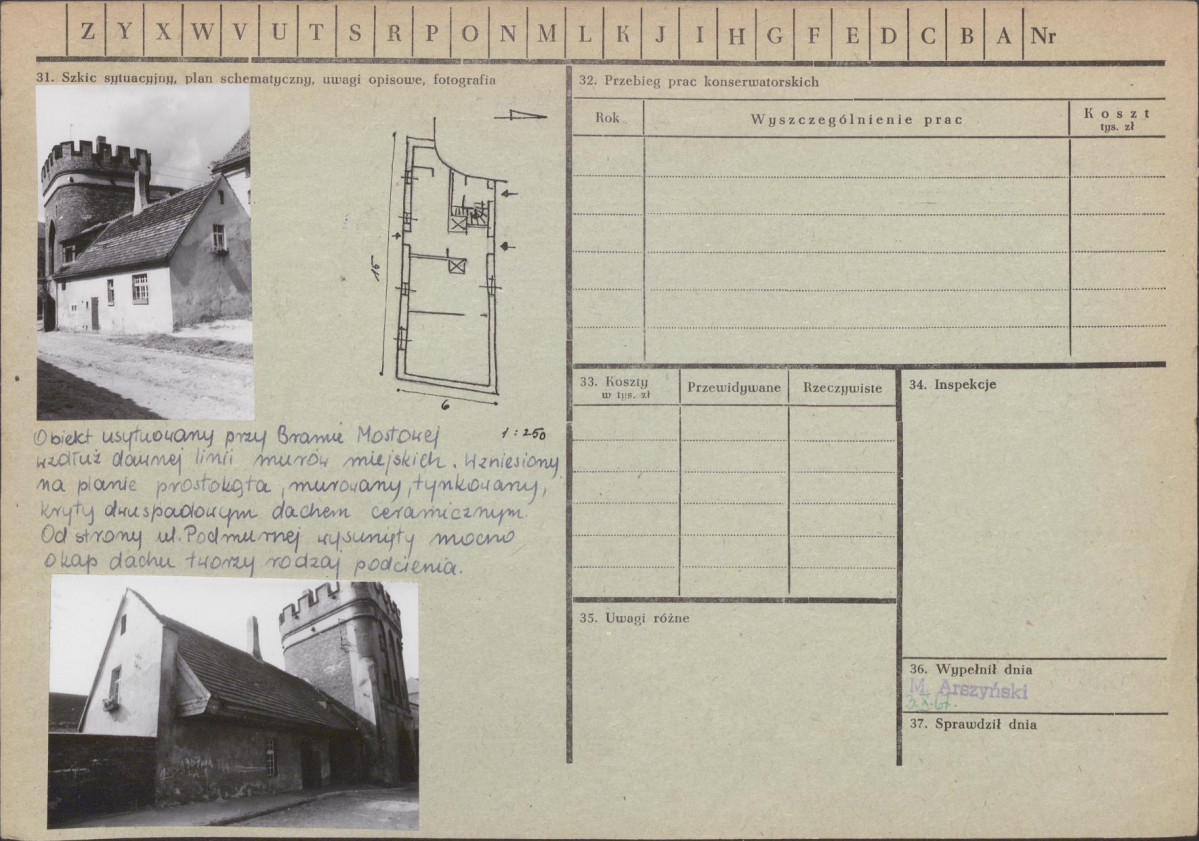 Z Y X W V U T S R P O N M L K J I H G F E D C B A Nr
31. Szkic sytuacyjny, plan schematyczny, uwagi opisowe, fotografia
15
6
1 : 250
Obiekt usytuowany przy Bramie Mostowej
wzdłuż dawnej linii murów miejskich. Wzniesiony
na planie prostokąta, murowany, tynkowany,
kryty dwuspadowym dachem ceramicznym.
Od strony ul. Podmurnej wysunięty mocno
okap dachu tworzy rodzaj podcienia.
32. Przebieg prac konserwatorskich
Rok Wyszczególnienie prac Koszt
tys. zł
33. Koszty Przewidywane Rzeczywiste
w tys. zł
34. Inspekcje
35. Uwagi różne
36. Wypełnił dnia
M. Arszyński
37. Sprawdził dnia